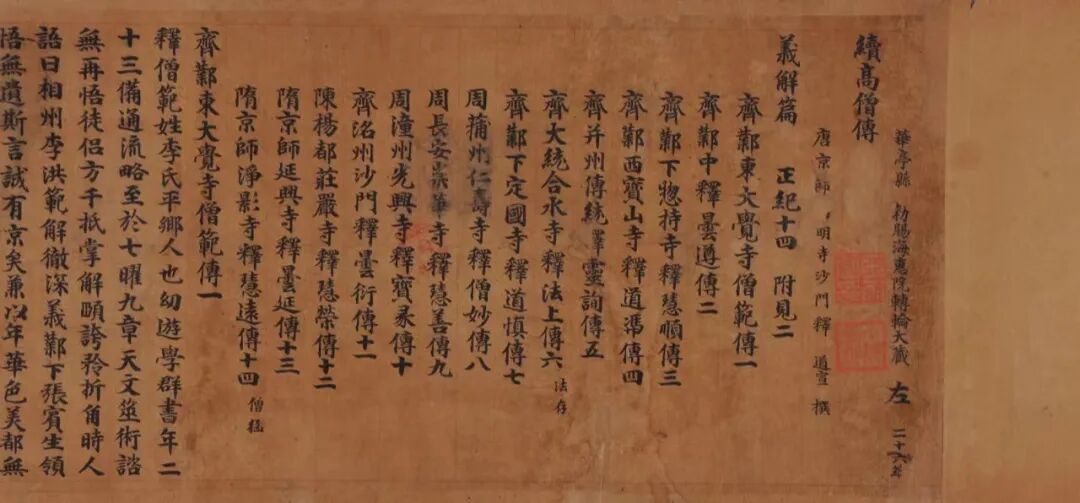 續高僧傳
華亭縣 勑賜海惠院轉輪大藏 左 二十六紙
唐京師 明寺沙門釋 道宣 撰
義解篇 正紀十四 附見二
齊鄴東大覺寺僧範傳一
齊鄴中釋曇遵傳二
齊鄴下惣持寺釋慧順傳三
齊鄴西寶山寺釋道憑傳四
齊并州傳統釋靈詢傳五
齊大統合水寺釋法上傳六 法存
齊鄴下定國寺釋道慎傳七
周蒲州仁壽寺釋僧妙傳八
周長安崇華寺釋慧善傳九
周潼州光興寺釋寶彖傳十
齊洺州沙門釋曇衍傳十一
陳楊都莊嚴寺釋慧榮傳十二
隋京師延興寺釋曇延傳十三
隋京師淨影寺釋慧遠傳十四 僧猛
齊鄴東大覺寺僧範傳一
釋僧範姓李氏平鄉人也幼遊學群書年二
十三備通流略至於七曜九章天文筮術諮
無再悟徒侶方千抵掌解頤誇矜折角時人
語曰相州李洪範解徹深義鄴下張賓生領
悟無遺斯言誠有京矣兼以年華色美都無